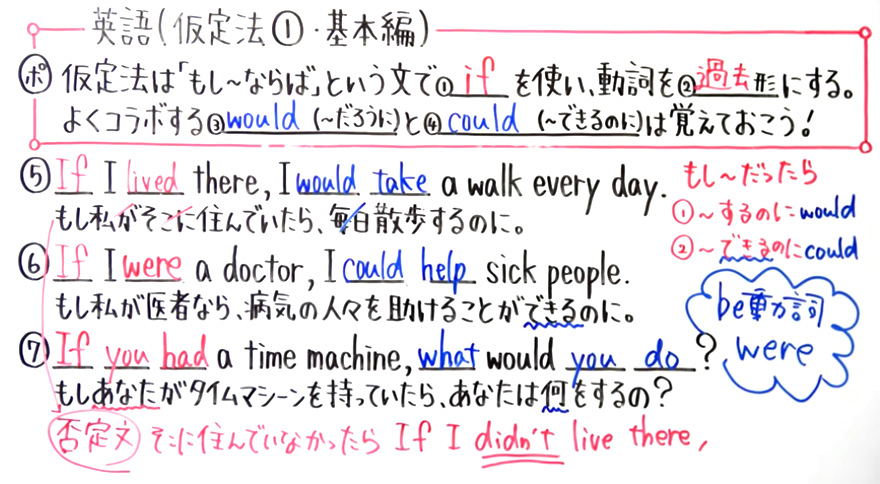 英語(仮定法①・基本編)
ポ 仮定法は「もし～ならば」という文で①ifを使い、動詞を②過去形にする。
よくコラボする③would(～だろうに)と④could(～できるのに)は覚えておこう!
⑤If I lived there, I would take a walk every day.
もし私がそこに住んでいたら、毎日散歩するのに。
もし～だったら
①～するのに:would
②～できるのに:could
⑥If I were a doctor, I could help sick people.
もし私が医者なら、病気の人々を助けることができるのに。
be動詞
were
⑦If you had a time machine, what would you do?
もしあなたがタイムマシーンを持っていたら、あなたは何をするの?
否定文 そこに住んでいなかったら If I didn't live there,